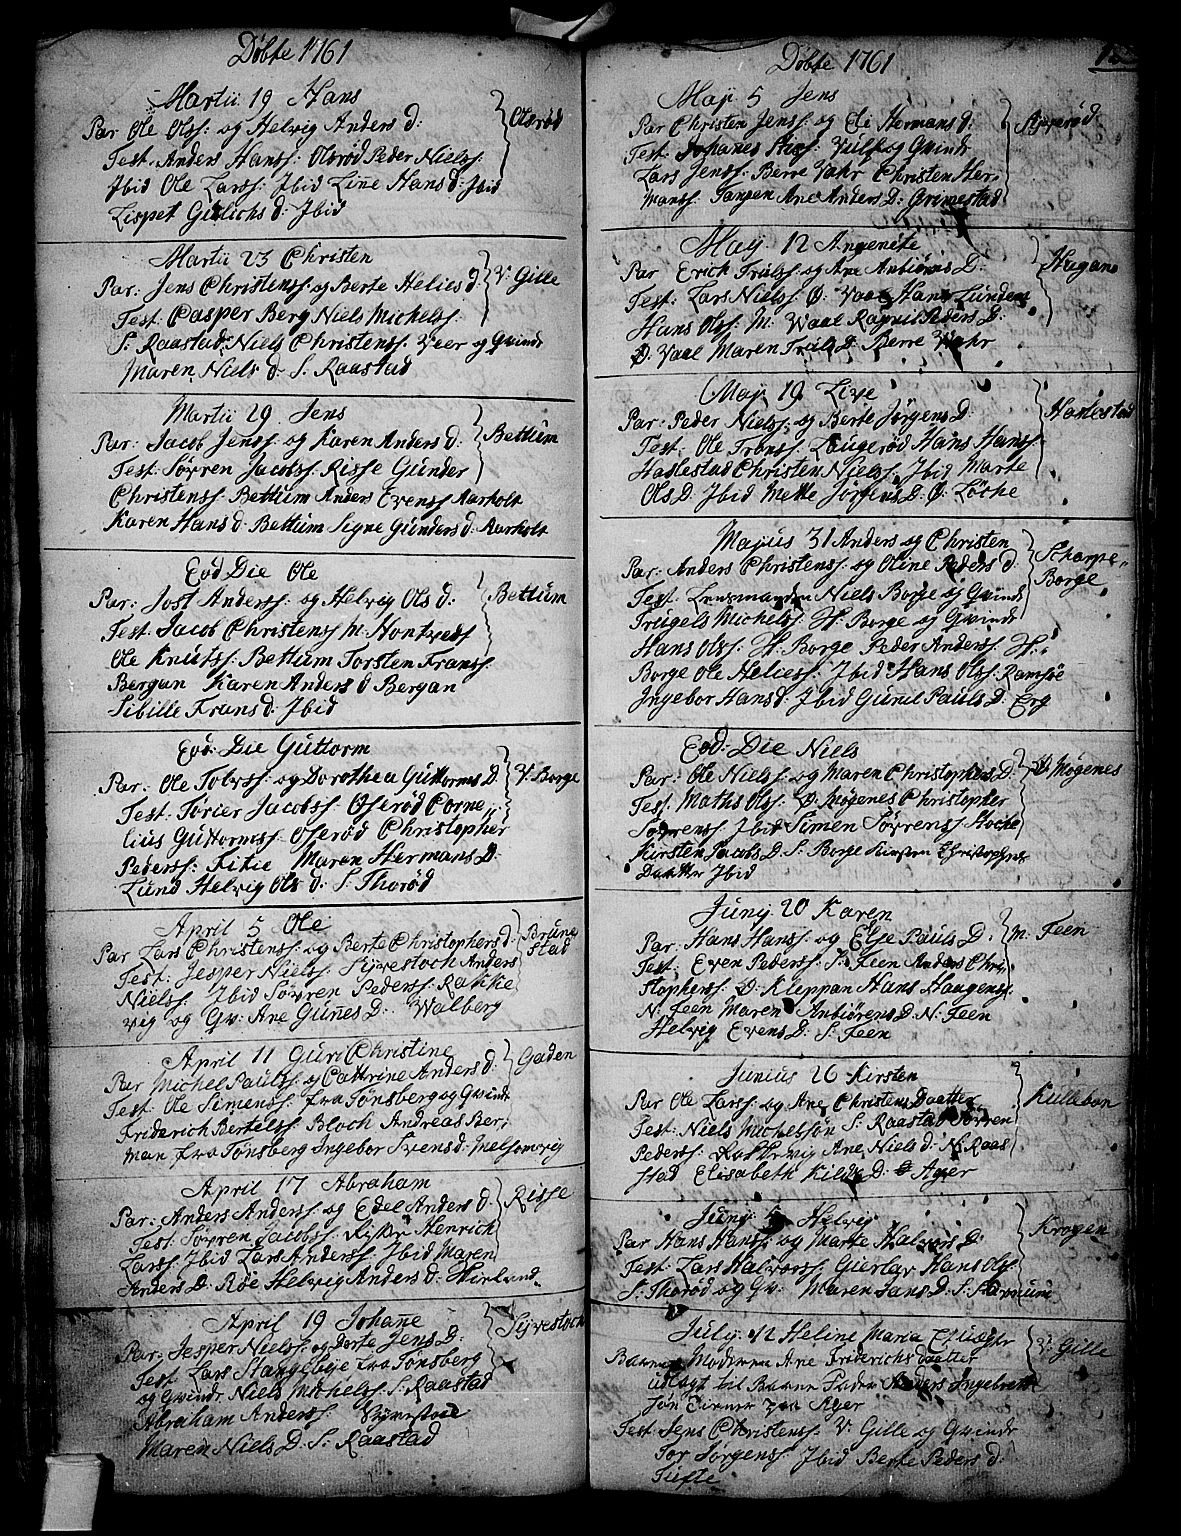 Døbte 1761
Martii 19 Hans
Par Ole Olss: og Helvig Anders d: Olsrød
Test: Anders Hanss: Olsrød Peder Nielss:
Ibid Ole Larss: Ibid Line Hans d: Ibid
Lispet Ibid
Martii 23 Christen
Par: Jens Christenss: og Berte Helies d: V: Gille
Test: Casper Berg Niels Michelss:
S: Raastad Niels Christenss: Veer og Qvinde
Maren Niels d: S: Raastad
Martii 29 Jens
Par: Jacob Jenss: og Karen Anders d: Bettum
Test: Sørren Jacobss: Risse Gunder
Christenss: Bettum Anders Evenss Aarholt
Karen Hans d: Bettum Signe Gunders d: Aarholt
Eod Die Ole
Par: Jost Anderss: og Helvig Ols d: Bettum
Test: Jacob Christenss M: Hontvedt
Ole Knutss: Bettum Torsten Franss:
Bergan Karen Anders d Bergan
Sibille Frans d: Ibid
Eod: Die Guttorm
Par: Ole Tolvss: og Dorothea Guttorms D: V: Borge
Test: Tørier Jacobss: Oserød Corne,,
lius Guttormss: Oserød Christopher
Pederss: Fitie Maren Hermans D:
Lund Helvig Ols d: S: Thorød
April 5 Ole
Par Lars Christenss: og Berte Christophers d: Brune
Test: Jesper Nielss: Syvestoch Anders stad
Nielss: Ibid Sørren Pederss: Rakke
vig og Qv: Ane Gunes D: Walberg
April 11 Guri Christine
Par Michel Paulss: og Cattrine Anders d: Gaden
Test: Ole Simenss: fra Tønsberg og Qvinde
Friderich Bertelss: Bloch Andreas Ber,
man fra Tønsberg Ingebor Svens d: Melsomvig
April 17 Abraham
Par: Anders Anderss: og Edel Anders d: Risse
Test: Sørren Jacobss: Henrich
Larss: Ibid Lars Anderss: Ibid Maren
Anders D: Røe Helvig Anders d:
April 19 Johane
Par: Jesper Nielss: og Dorte Jens D: Syvestoch
Test: Lars Stangebye fra Tønsberg
og Qvinde Niels Michelss: S: Raastad
Abraham Anderss:
Maren Niels D: S: Raastad
Døbte 1761
Maji 5 Jens
Par Christen Jenss: og Eli Hermans d:
Test: Johanes og Qvinde
Lars Jenss: Berre Vahr Christen Her,
manss: Tangen Ane Anders D: Grimestad
Maij 12 Angenete
Par Erich Trulss: og Ane Anbiørns D: Hagane
Test: Lars Nielss: Ø: Vaal Hans Lunden
Hans Olss: M: Vaal Ragnil Peders D:
Ø: Vaal Maren Truls D: Berre Vahr
Maji 19 Live
Par: Peder Nielss: og Berte Jørgens D: Haslestad
Test: Ole Franss: Laugerød Hans Hanss:
Haslestad Christen Nielss: Ibid Marte
Ols D: Ibid Mette Jørgens D: Ø: Løche
Majus 31 Anders og Christen
Par: Anders Christenss: og Oline Peders d: Scharpe,,
Test: Lensmanden Niels Borge og Qvinde Borge
Trugels Michelss: H: Borge og Qvinde
Hans Olss: H: Borge Peder Anderss: H:
Borge Ole Heliess: Ibid Hans Olss: Ramsøe
Ingebor Hans d: Ibid Gunil Pauls D: Erg
Eod: Die Niels
Par: Ole Nielss: og Maren Christophers D: Ø: Møgenes
Test: Maths Olss: Ø: Møgenes Christopher
Sørrenss: Ibid Simen Sørrenss: Hoche
Kirsten Jacobs D: S: Borge Kirsten Christophers
Daatter Ibid
Junij 20 Karen
Par: Hans Hanss: og Else Pauls D: M: Feen
Test: Even Pederss: S: Feen Anders Chri,,
stophers: Ø: Kleppan Hans Haagenss:
N: Feen Maren Anbiørens D: N: Feen
Helvig Evens D: S: Feen
Junius 26 Kirsten
Par Ole Larss: og Ane Christens Daatter Kullebon
Test: Niels Michelssøn S: Raastad Sørren
Pederss: Rakkevig Ane Niels d: N: Raas
stad Elisabeth D: Ager
Junij Helvig
Par Hans Hanss: og Marte Halvors D: Krogen
Test: Lars Halvorss: Gierlav Hans Olss:
S: Thorød og Qv: Maren Jans D: S:
July 12 Heline Maria
Barne Moderen Ane Friderichs daatter V: Gille
udlagt til Barne Fader Anders Ingebret
Søn Ager
Test Jens Christenss: V: Gille og Qvinde
Tor Jørgenss: Ibid Berte Peders d:
Tufte